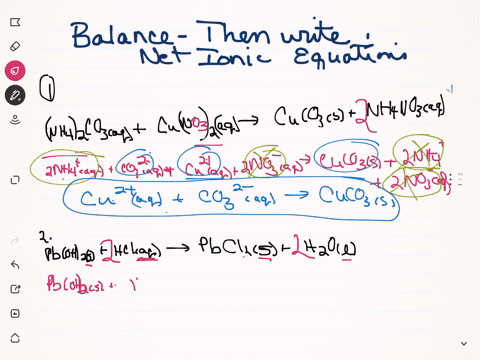 Balance - Then write :
Net Ionic Equations
①
(NH4)2CO3(aq) + Cu(NO3)2(aq) → CuCO3(s) + 2NH4NO3(aq)
2NH4+(aq) + CO3 2-(aq) + Cu2+(aq) + 2NO3-(aq) → CuCO3(s) + 2NH4+
+ 2NO3(aq)
Cu2+(aq) + CO3 2-(aq) → CuCO3(s)
2.
Pb(OH)2(s) + 2HCl(aq) → PbCl2(s) + 2H2O(l)
Pb(OH)2(s) +